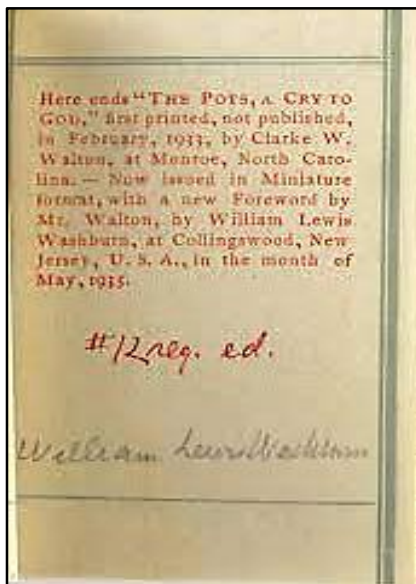 Here ends "THE POTS, A CRY TO
GOD," first printed, not published,
in February, 1933, by Clarke W.
Walton, at Monroe, North Caro-
lina. — Now issued in Miniature
format, with a new Foreword by
Mr. Walton, by William Lewis
Washburn, at Collingswood, New
Jersey, U. S. A., in the month of
May, 1935.
#12 reg. ed.
William Lewis Washburn